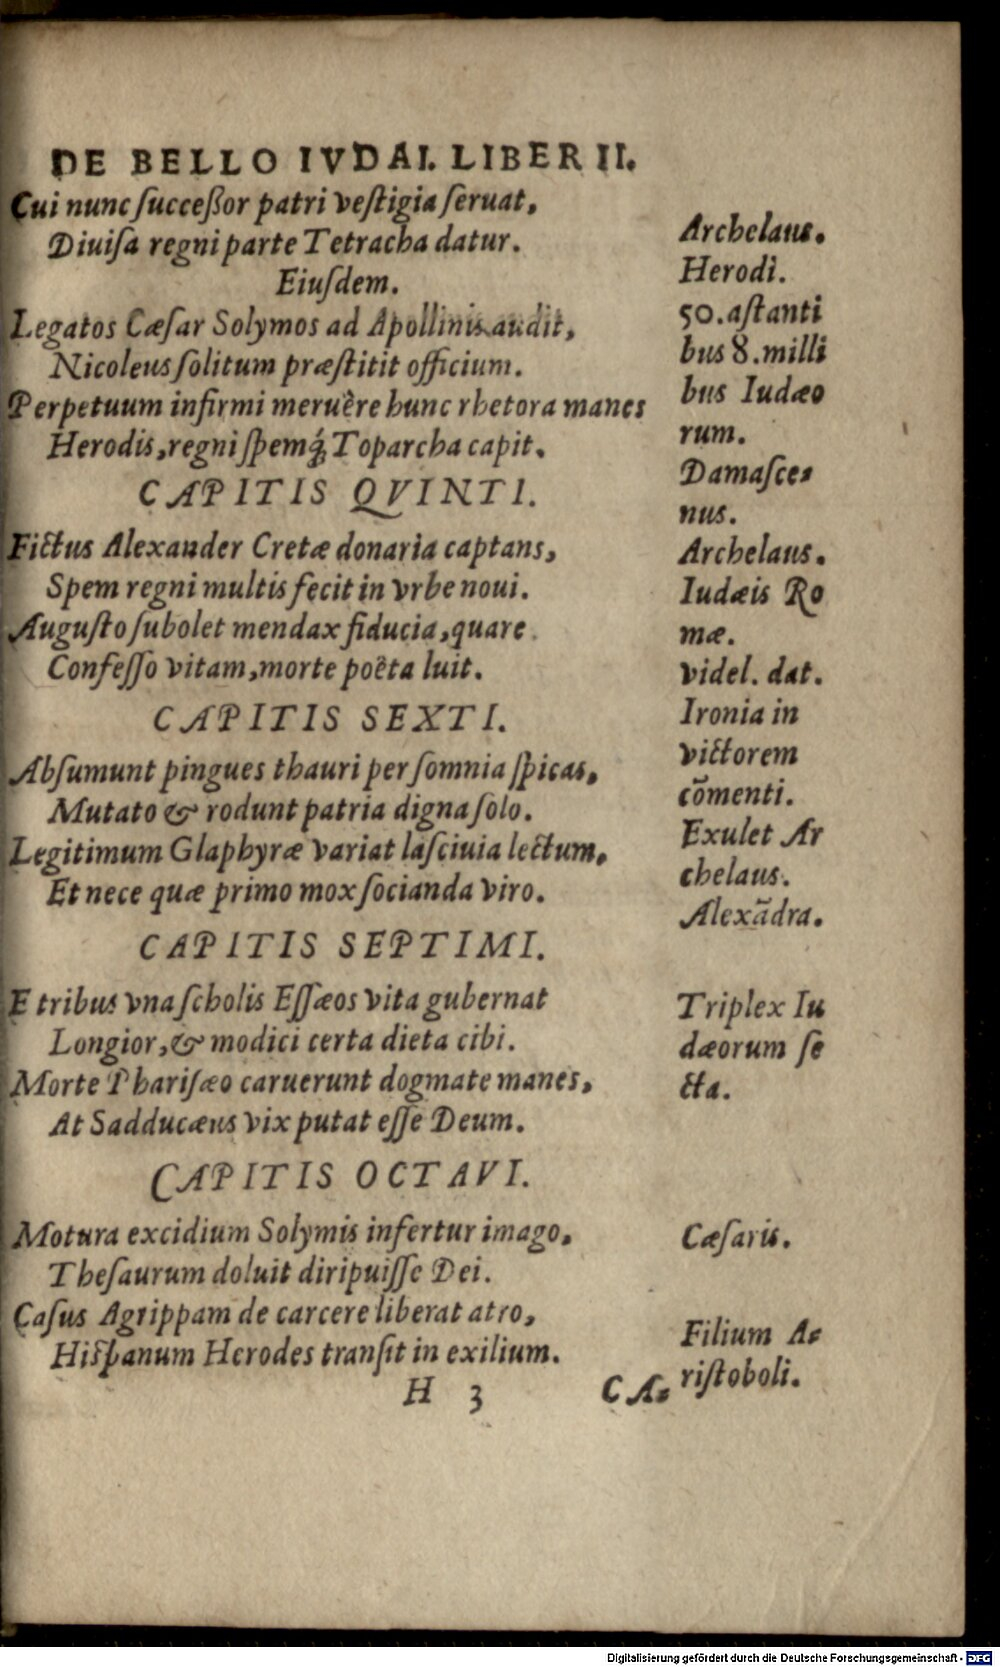 DE BELLO IVDAI. LIBER II.
Cui nunc ſucceßor patri veſtigia ſeruat,
Diuiſa regni parte Tetracha datur.
Eiuſdem.
Legatos Cæſar Solymos ad Apollinis audit,
Nicoleus ſolitum præſtitit officium.
Perpetuum infirmi meruêre hunc rhetora manes
Herodis, regni ſpemq́; Toparcha capit.
CAPITIS QVINTI.
Fictus Alexander Cretæ donaria captans,
Spem regni multis fecit in vrbe noui.
Auguſto ſubolet mendax fiducia, quare
Confeſſo vitam, morte poëta luit.
CAPITIS SEXTI.
Abſumunt pingues thauri per ſomnia ſpicas,
Mutato & rodunt patria digna ſolo.
Legitimum Glaphyræ variat laſciuia lectum,
Et nece quæ primo mox ſocianda viro.
CAPITIS SEPTIMI.
E tribus vna ſcholis Eſſæos vita gubernat
Longior, & modici certa dieta cibi.
Morte Phariſæo caruerunt dogmate manes,
At Sadducæus vix putat eſſe Deum.
CAPITIS OCTAVI.
Motura excidium Solymis infertur imago,
Theſaurum doluit diripuiſſe Dei.
Caſus Agrippam de carcere liberat atro,
Hiſpanum Herodes tranſit in exilium.
H 3
CA⸗
Archelaus.
Herodi.
50. aſtanti
bus 8. milli
bus Iudæo
rum.
Damaſce⸗
nus.
Archelaus.
Iudæis Ro
mæ.
videl. dat.
Ironia in
victorem
cōmenti.
Exulet Ar
chelaus.
Alexādra.
Triplex Iu
dæorum ſe
cta.
Cæſaris.
Filium A⸗
riſtoboli.
Digitalisierung gefördert durch die Deutsche Forschungsgemeinschaft - DFG